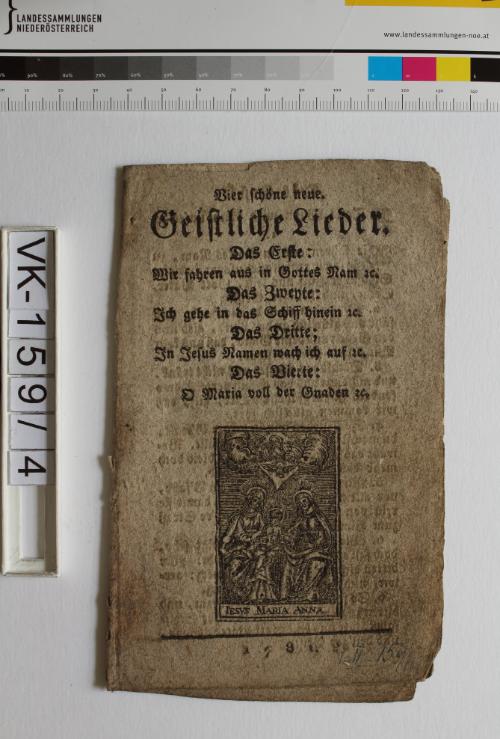 LANDESSAMMLUNGEN
NIEDERÖSTERREICH
www.landessammlungen-noe.at
VK-159/4
Vier schöne neue.
Geistliche Lieder.
Das Erste:
Wir fahren aus in Gottes Nam ꝛc.
Das Zweyte:
Ich gehe in das Schiff hinein ꝛc.
Das Dritte;
In Jesus Namen wach ich auf ꝛc.
Das Vierte:
O Maria voll der Gnaden ꝛc.
IESVS MARIA ANNA